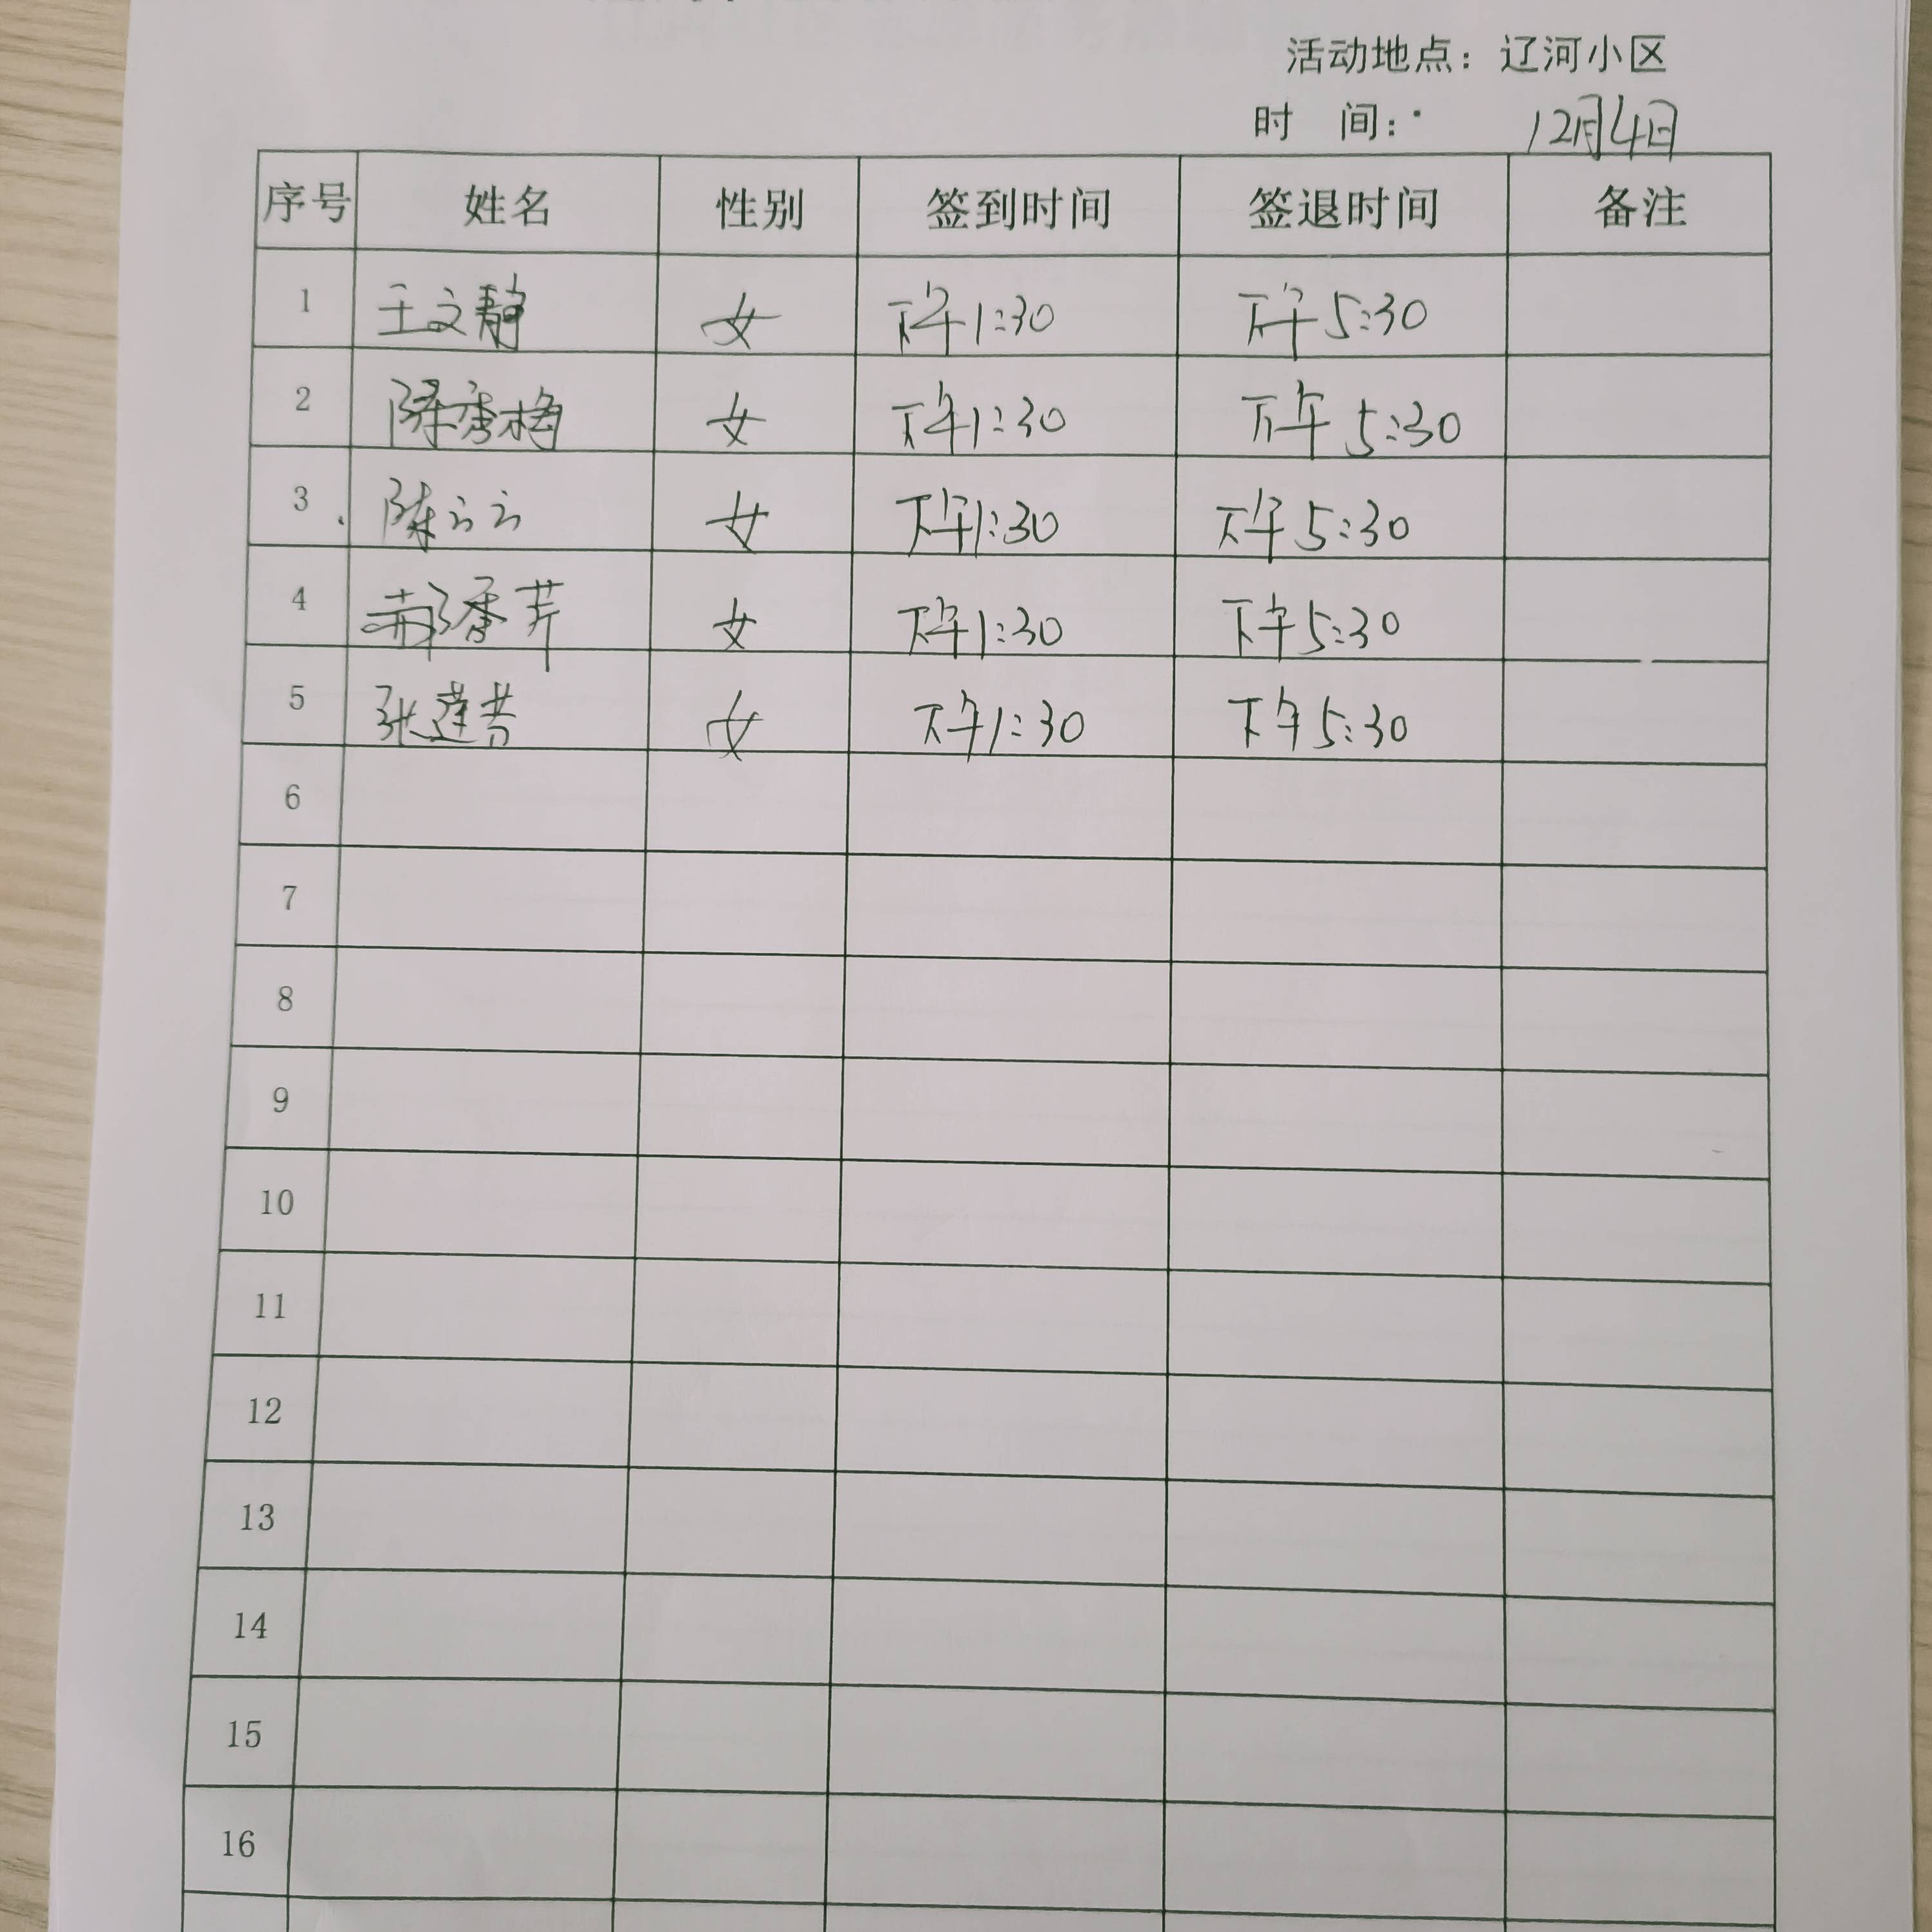 活动地点：辽河小区
时 间： 12月4日
序号 姓名 性别 签到时间 签退时间 备注
1 王文静 女 下午1:30 下午5:30
2 陈秀梅 女 下午1:30 下午5:30
3 陈云云 女 下午1:30 下午5:30
4 郝香芹 女 下午1:30 下午5:30
5 张莲芳 女 下午1:30 下午5:30
6
7
8
9
10
11
12
13
14
15
16